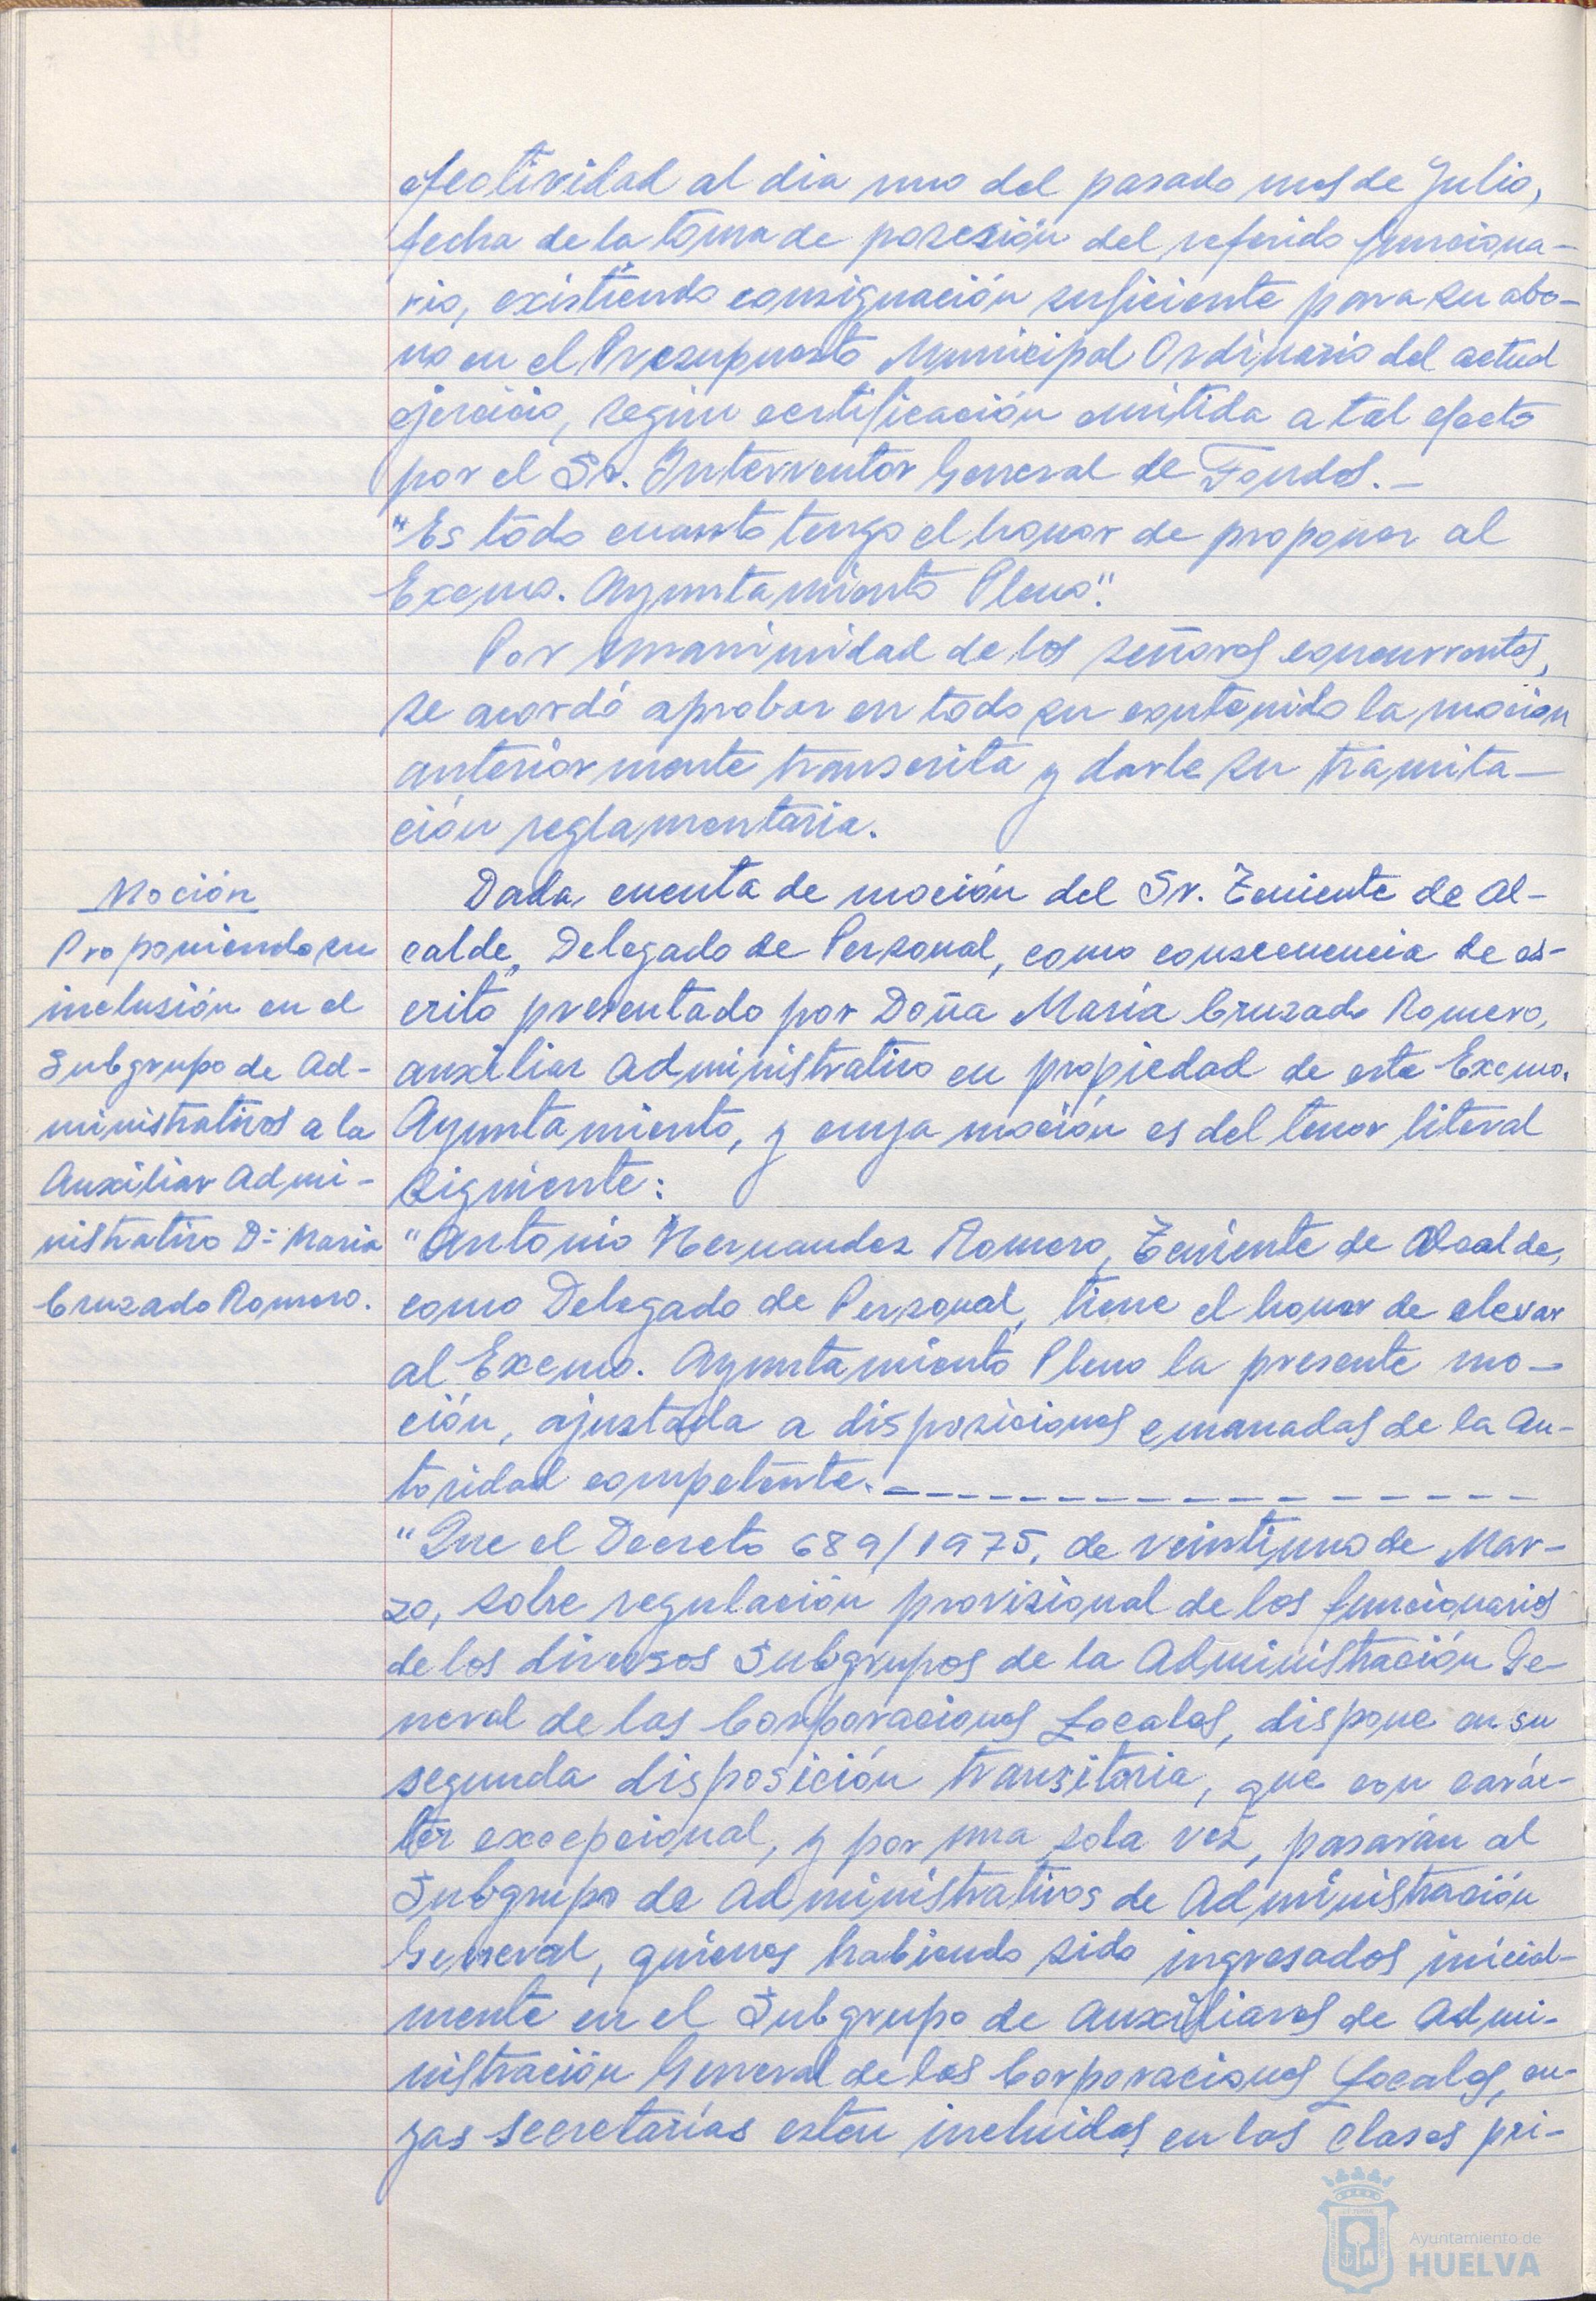 efectividad al dia uno del pasado mes de Julio,
fecha de la toma de posesión del referido funciona-
rio, existiendo consignación suficiente para su abo-
no en el Presupuesto Municipal Ordinario del actual
ejercicio, según certificación emitida a tal efecto
por el Sr. Interventor General de Fondos.-
"Es todo cuanto tengo el honor de proponer al
Excmo. Ayuntamiento Pleno".
Por unanimidad de los señores concurrentes,
se acordó aprobar en todo su contenido la moción
anteriormente transcrita y darle su tramita-
ción reglamentaria.
Moción
Proponiendo su
inclusión en el
Subgrupo de Ad-
ministrativos a la
Auxiliar Admi-
nistrativo Dª Maria
Cruzado Romero.
Dada cuenta de moción del Sr. Teniente de Al-
calde, Delegado de Personal, como consecuencia de es-
crito presentado por Doña María Cruzado Romero,
auxiliar administrativo en propiedad de este Excmo.
Ayuntamiento, y cuya moción es del tenor literal
siguiente:
"Antonio Hernandez Romero, Teniente de Alcalde,
como Delegado de Personal, tiene el honor de elevar
al Excmo. Ayuntamiento Pleno la presente mo-
ción, ajustada a disposiciones emanadas de la Au-
toridad competente.- - - - - - - - - - - - - - - -
"Que el Decreto 689/1975, de veintiuno de Mar-
zo, sobre regulación provisional de los funcionarios
de los diversos Subgrupos de la Administración Ge-
neral de las Corporaciones Locales, dispone en su
segunda disposición transitoria, que con carác-
ter excepcional, y por una sola vez, pasarán al
Subgrupo de Administrativos de Administración
General, quienes habiendo sido ingresados inicial-
mente en el Subgrupo de Auxiliares de Admi-
nistración General de las Corporaciones Locales, cu-
yas secretarías esten incluidas en las clases pri-
Ayuntamiento de
HUELVA